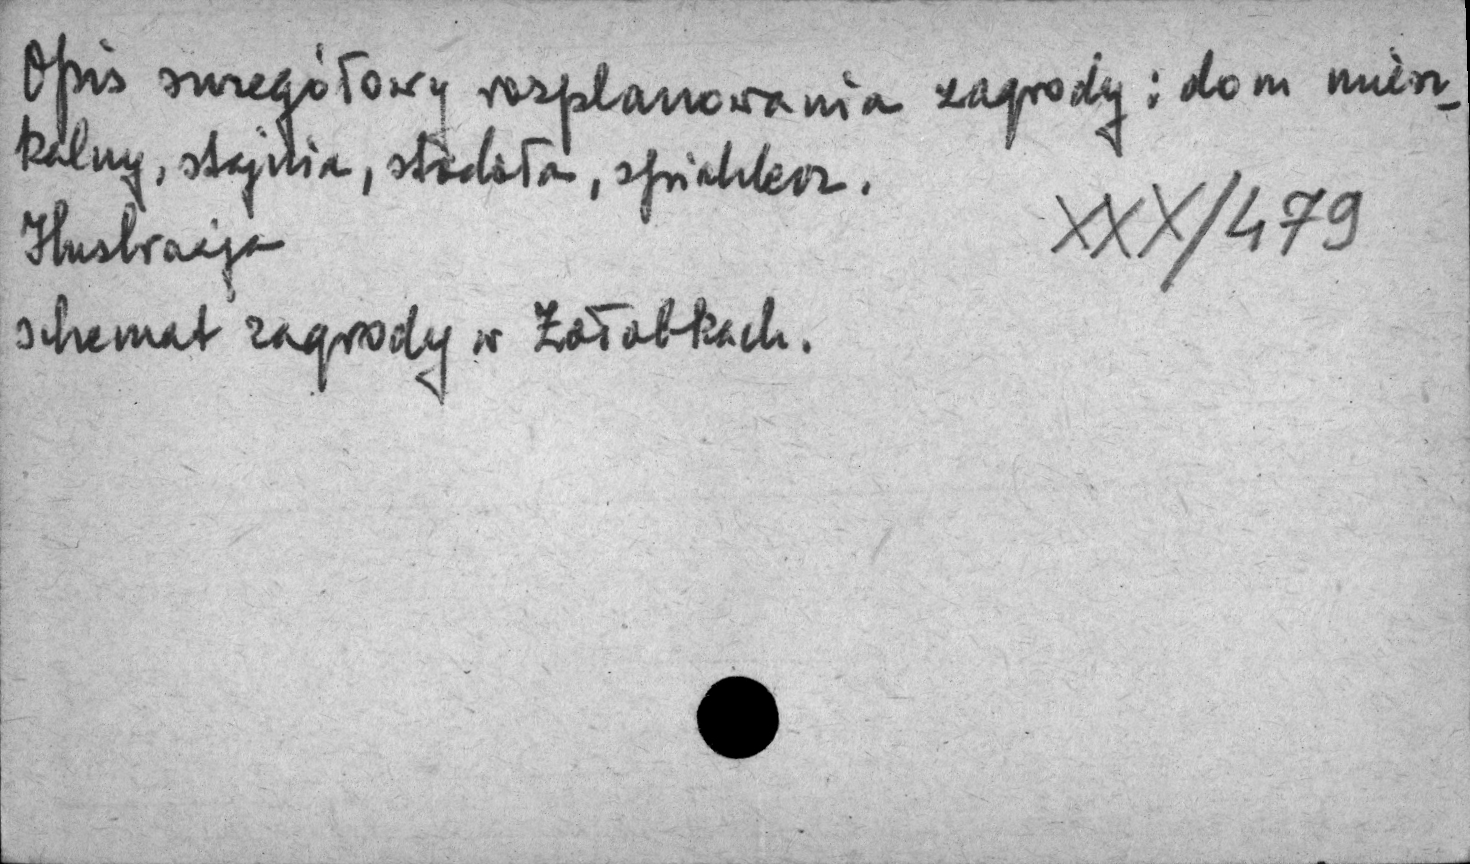 Opis szczegółowy rozplanowania zagrody: dom miesz-
kalny, stajnia, stodoła, spichlerz.
XXX/479
Ilustracja
schemat zagrody w Żołobkach.